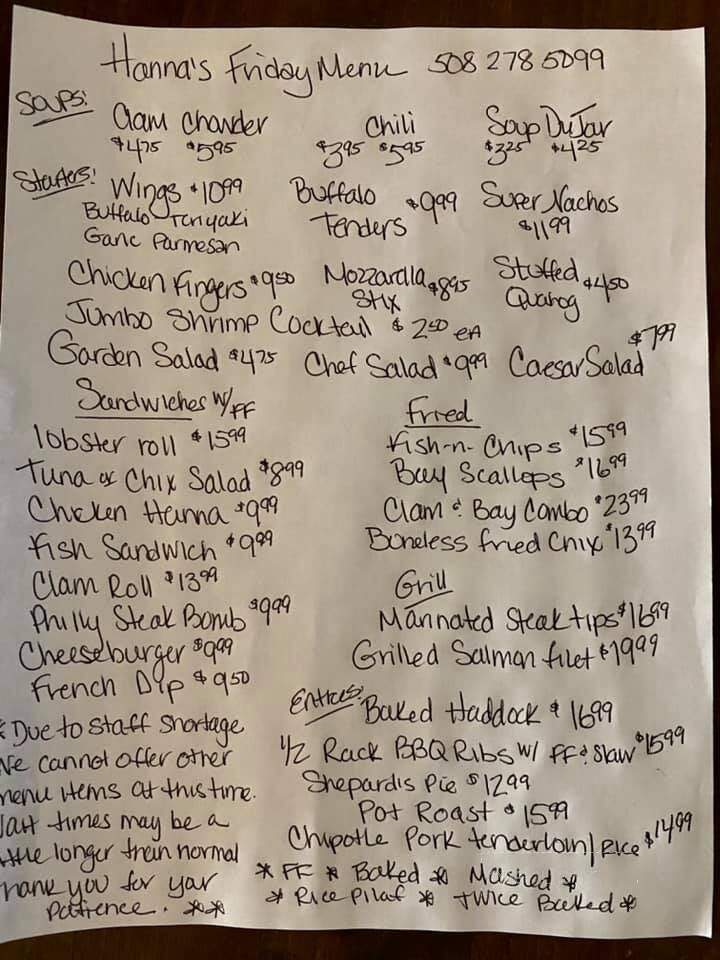 Hanna's Friday Menu 508 278 5099
Soups:
Clam Chowder Chili Soup Du Jar
$4.75 $5.95 $3.95 $5.95 $3.25 $4.25
Starters: Wings $10.99 Buffalo Tenders $9.99 Super Nachos $11.99
Buffalo Teriyaki
Garlic Parmesan
Chicken Fingers $9.50 Mozzarella Stix $8.95 Stuffed Quahog $4.50
Jumbo Shrimp Cocktail $2.50 EA
Garden Salad $4.75 Chef Salad $9.99 Caesar Salad $7.99
Sandwiches W/ FF
lobster roll $15.99
Tuna or Chix Salad $8.99
Chicken Hanna $9.99
Fish Sandwich $9.99
Clam Roll $13.99
Philly Steak Bomb $9.99
Cheeseburger $9.99
French Dip $9.50
Fried
Fish-n-Chips $15.99
Bay Scallops $16.99
Clam & Bay Combo $23.99
Boneless fried Chix $13.99
Grill
Marinated Steak tips $16.99
Grilled Salmon filet $19.99
Entrees:
Baked Haddock $16.99
1/2 Rack BBQ Ribs w/ FF & Slaw $15.99
Shepard's Pie $12.99
Pot Roast $15.99
Chipotle Pork tenderloin/Rice $14.99
* FF * Baked * Mashed *
* Rice Pilaf * twice Baked *
* Due to Staff Shortage
We cannot offer other
menu items at this time.
Wait times may be a
little longer than normal
Thank you for your
Patience. **